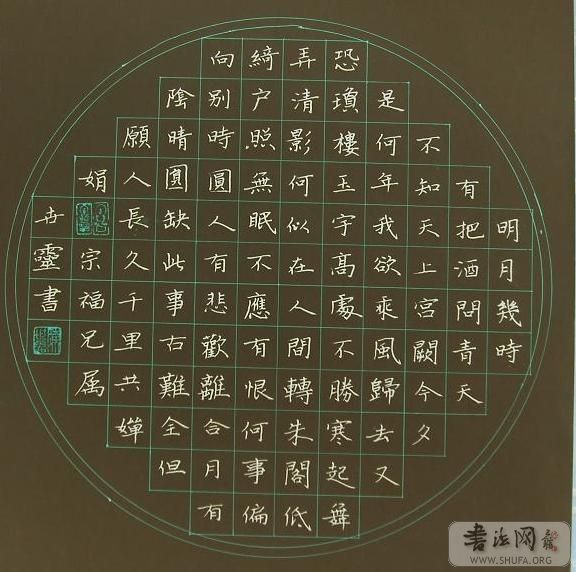 明月幾時
有把酒問青天
不知天上宮闕今夕
是何年我欲乘風歸去又
恐瓊樓玉宇高處不勝寒起舞
弄清影何似在人間轉朱閣低
綺户照無眠不應有恨何事偏
向别時圓人有悲歡離合月有
陰晴圓缺此事古難全但
願人長久千里共嬋
娟
宗福兄属
世靈書
书法网
WWW.SHUFA.ORG